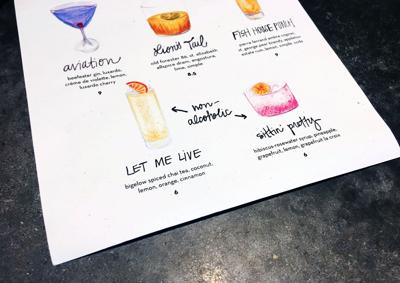 aviation
beefeater gin, luxardo,
crème de violette, lemon,
luxardo cherry
9
Lion's Tail
old forester 86, st. elizabeth
allspice dram, angostura,
lime, simple
8.5
FISH HOUSE PUNCH
pierre ferrand ambre cognac,
st. george pear brandy, appleton
estate rum, lemon, simple soda
9
non-
alcoholic
LET ME LiVE
bigelow spiced chai tea, coconut,
lemon, orange, cinnamon
6
sittin' pretty
hibiscus-rosewater syrup, pineapple,
grapefruit, lemon, grapefruit la croix
6